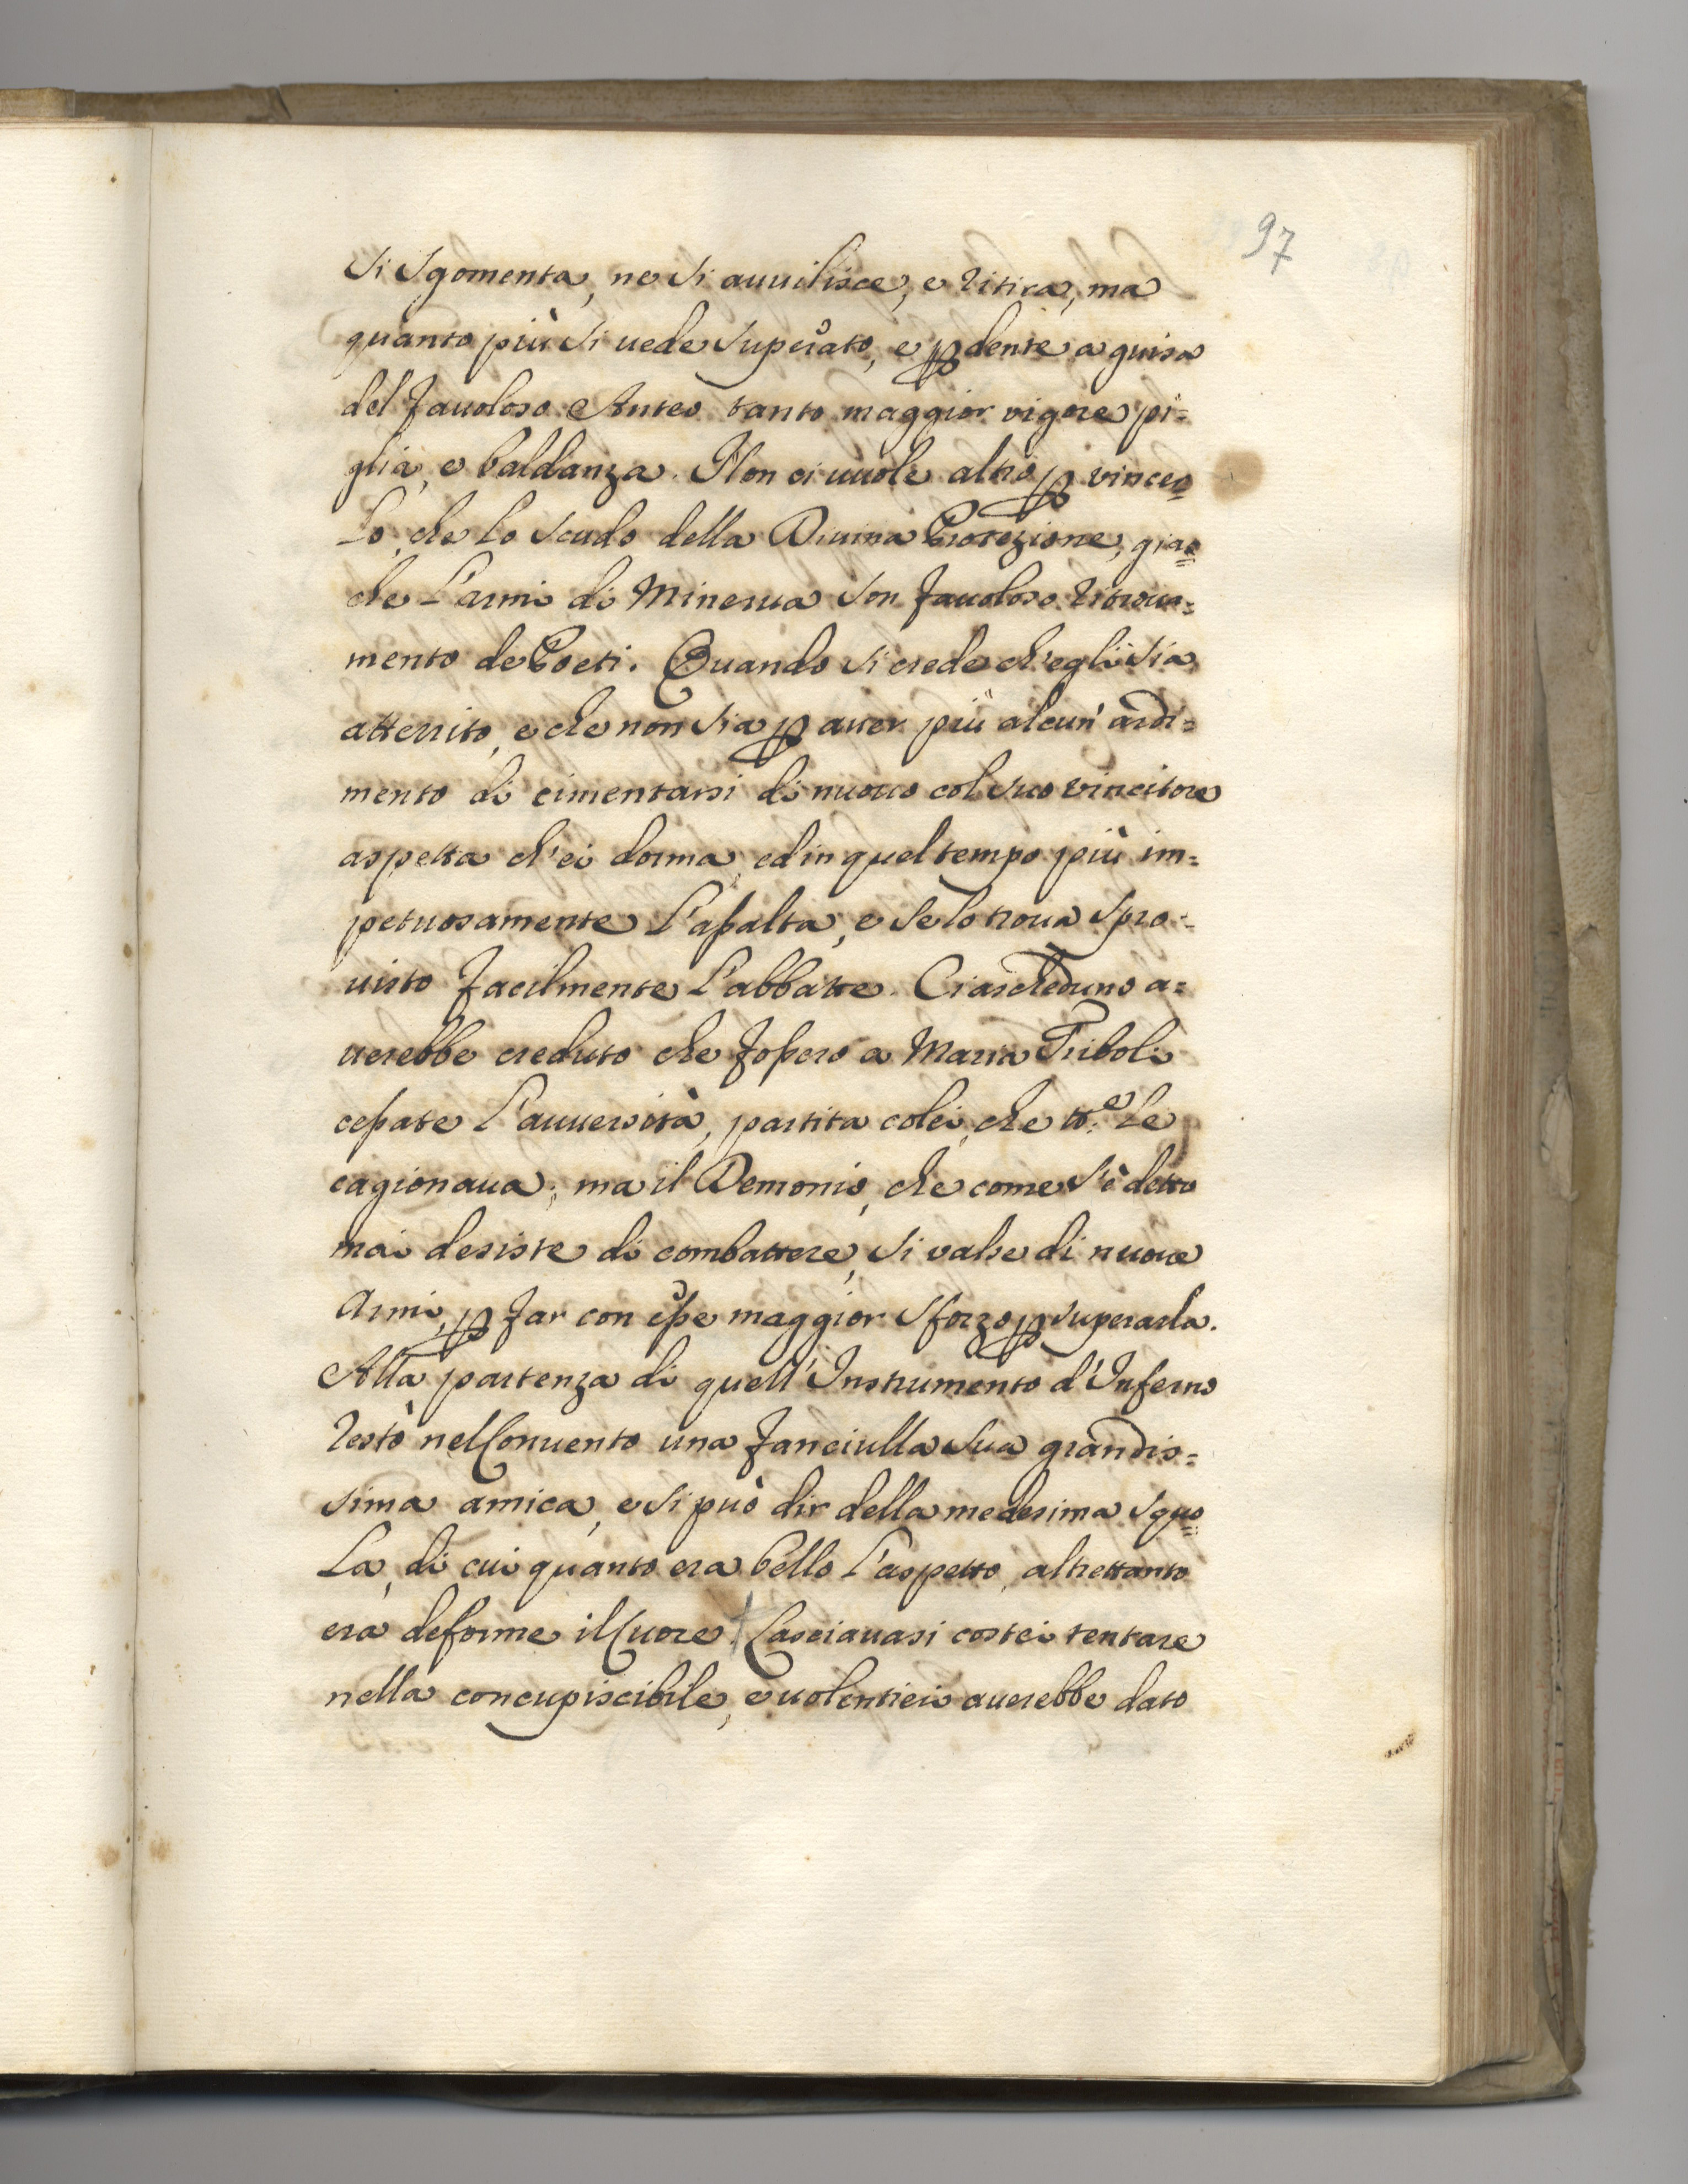 97
si sgomenta, ne si auuilisce, e ritira, ma
quanto più si uede superato, e ꝑdente a guisa
del fauoloso Anteo tanto maggior vigore pi=
glia, e baldanza. Non ci uuole altro ꝑ vincer=
lo, che lo scudo della Diuina Protezione, giac=
che l'armi di Minerua son fauoloso ritroua=
mento de Poeti. Quando si crede ch'egli sia
atterrito, e che non sia ꝑ auer più alcun' ardi=
mento di cimentarsi di nuouo col suo vincitore
aspetta ch'ei dorma, ed in quel tempo più im=
petuosamente l'assalta, e se lo troua spro=
uisto facilmente l'abbatte. Ciascheduno a=
uerebbe creduto che fossero a Maria Triboli
cessate l'auuersità, partita colei, che tt.e le
cagionaua; ma il Demonio, che come s'è detto
mai desiste di combattere, si valse di nuoue
Armi, ꝑ far con esse maggior sforzo ꝑ superarla.
Alla partenza di quell'Instrumento d'Inferno
restò nel Conuento una fanciulla sua grandis=
sima amica, e si può dir della medesima squo=
la, di cui quanto era bello l'aspetto, altrettanto
era deforme il Cuore. Lasciauasi costei tentare
nella concupiscibile, e uolentieri auerebbe dato